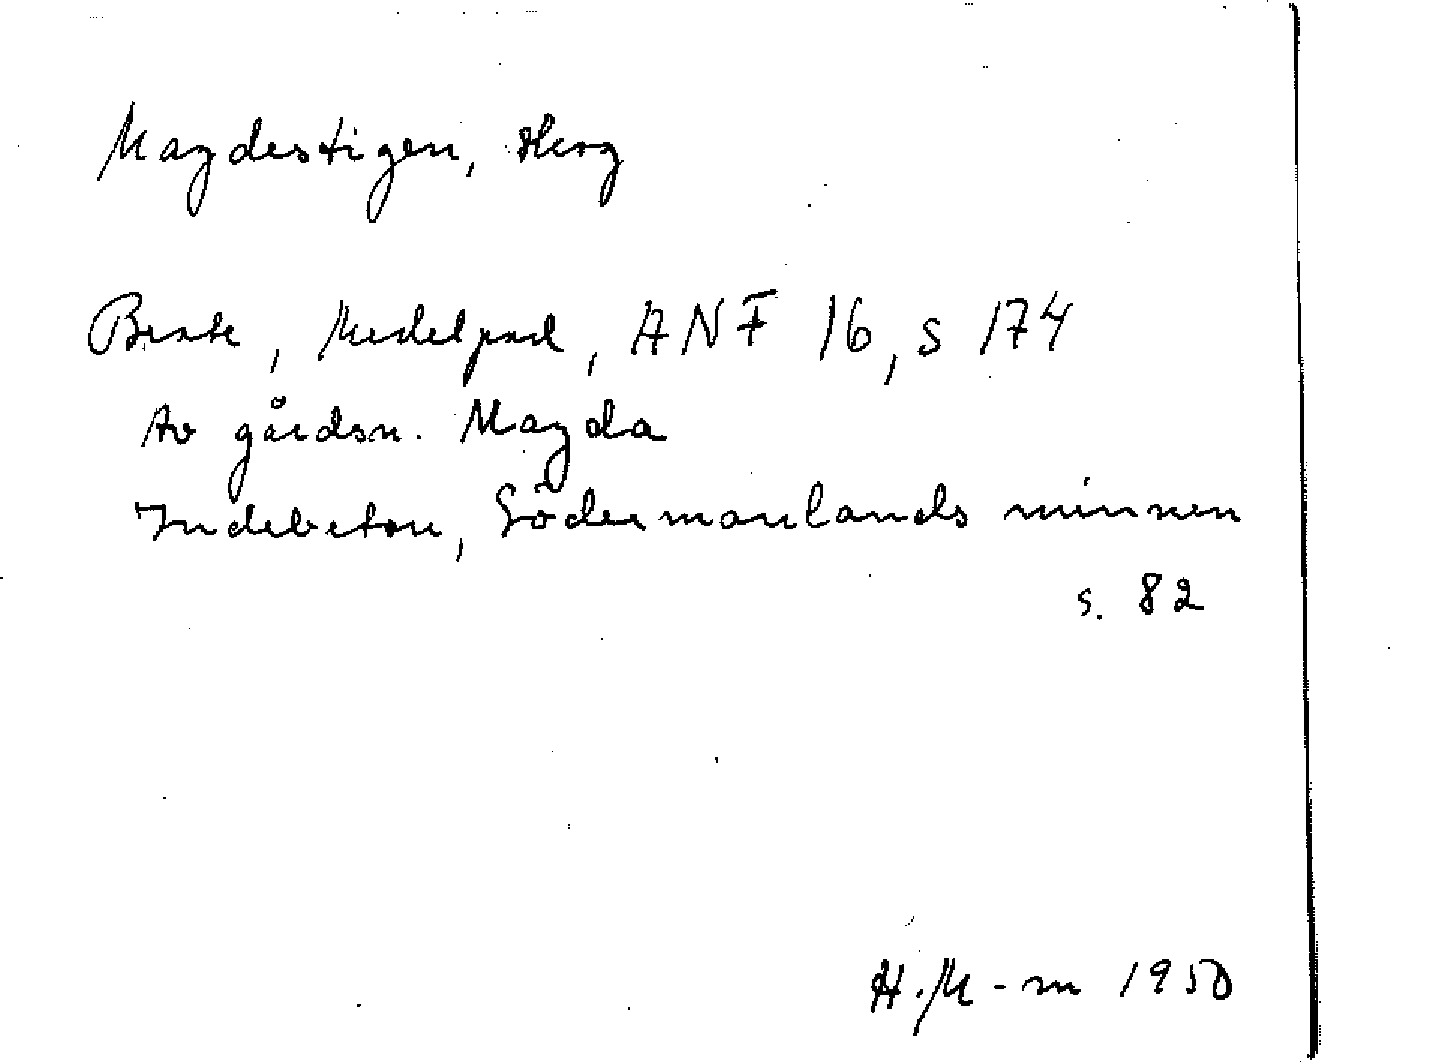 Magdestigen, Skog
Brate, Medelpad, ANF 16, s 174
Av gårdsn. Magda
Indebetou, Södermanlands minnen
s. 82
H. M-m 1950